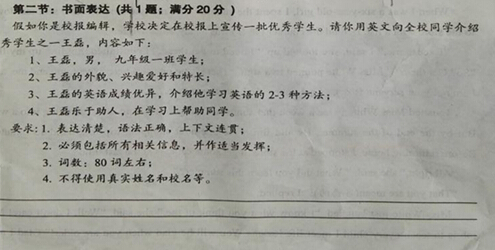 第二节：书面表达（共1题；满分20分）
假如你是校报编辑，学校决定在校报上宣传一批优秀学生。请你用英文向全校同学介绍
秀学生之一王磊，内容如下：
1、王磊，男， 九年级一班学生；
2、王磊的外貌、兴趣爱好和特长；
3、王磊的英语成绩优异，介绍他学习英语的 2-3 种方法；
4、王磊乐于助人，在学习上帮助同学。
要求：1. 表达清楚，语法正确，上下文连贯；
2. 必须包括所有相关信息，并作适当发挥；
3. 词数：80 词左右；
4. 不得使用真实姓名和校名等。